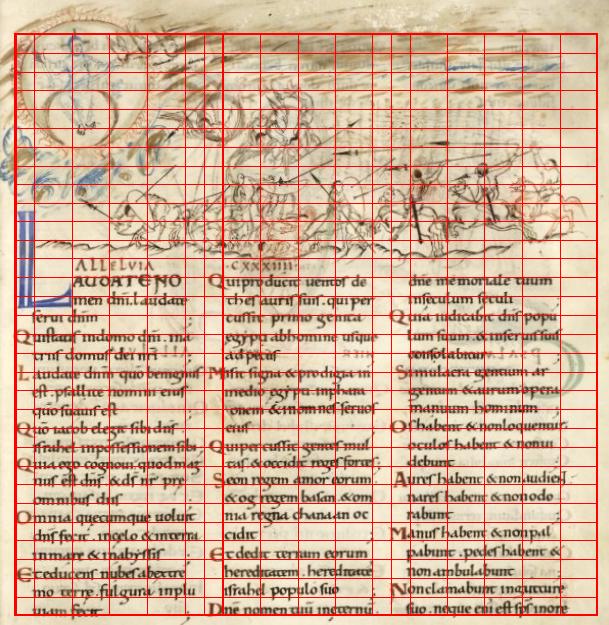 ALLELUIA
CXXXIIII
LAUDATE NO
men dñi. laudate
serui dñm
Qui statis in domo dñi. in a
triis domus dei nr̄i
Laudate dñm quō benignus
est. psallite nomini eius
quō suauis est
Quō iacob elegit sibi dñs
israhel in possessionem sibi
Quia ego cognoui quod mag
nus est dñs & ds̄ nr̄ prę
omnibus diis
Omnia quęcumque uoluit
dñs fecit. in cęlo & in terra
in mare & in abyssis
Et educens nubes ab extre
mo terrę. fulgura in plu
uiam fecit
Qui producit uentos de
thesauris suis. qui per
cussit primogenita
egypti ab homine usque
ad pecus
Misit signa & prodigia in
medio egypti. in phara
onem & in omnes seruos
eius
Qui percussit gentes mul
tas & occidit reges fortes;
Seon regem amorreorum
& og regem basan. & om
nia regna chanaan oc
cidit
Et dedit terram eorum
hereditatem. hereditatē
israhel populo suo
Dñe nomen tuū in ęternū
dñe memoriale tuum
in seculum seculi
Quia iudicabit dñs popu
lum suum. & in seruis suis
consolabitur
Simulacra gentium ar
gentum & aurum. opera
manuum hominum
Os habent & non loquentur.
oculos habent & non ui
debunt
Aures habent & non audient
nares habent & non odo
rabunt
Manus habent & non pal
pabunt. pedes habent &
non ambulabunt
Non clamabunt in gutture
suo. neque eni est sp̄s in ore